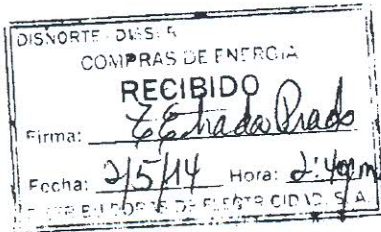 DISNORTE - DISSUR
COMPRAS DE ENERGIA
RECIBIDO
Firma: Estrada Prado
Fecha: 2/5/14 Hora: 2:40pm
DE ELECTRICIDAD, S.A.